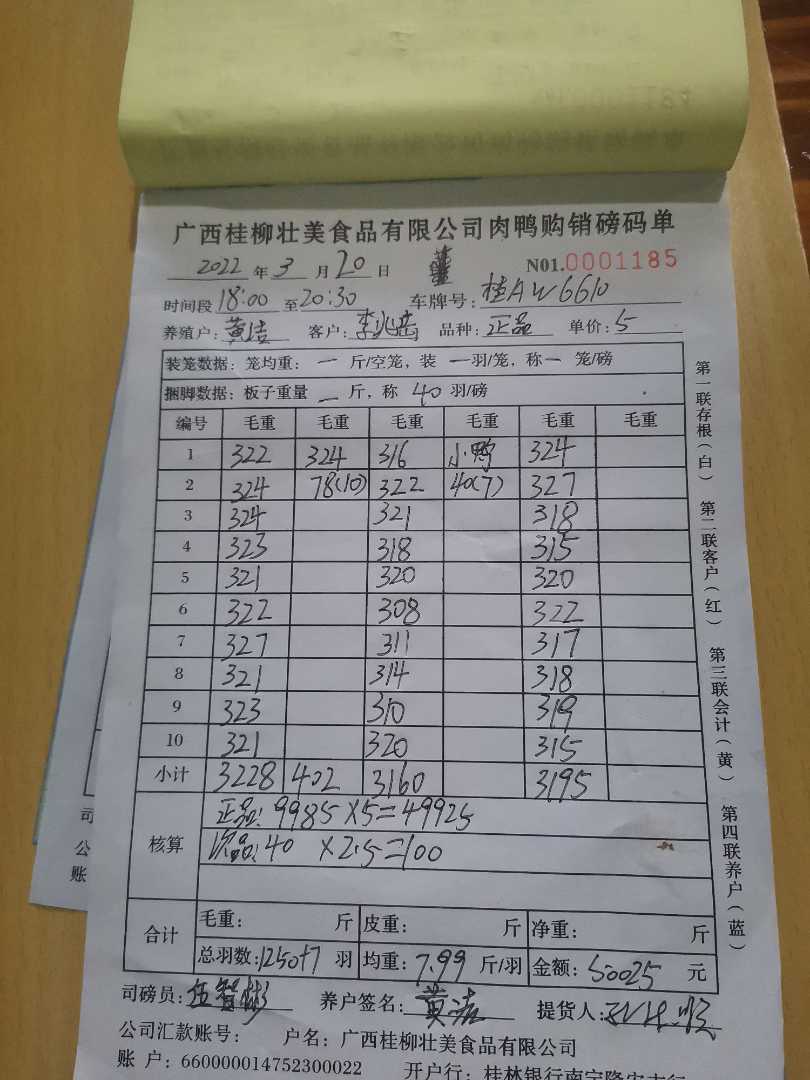 广西桂柳壮美食品有限公司肉鸭购销磅码单
2022 年 3 月 20 日 N01.0001185
时间段 18:00 至 20:30 车牌号: 桂AW6610
养殖户: 黄洁 客户: 李兆 品种: 正品 单价: 5
装笼数据: 笼均重: 一 斤/空笼, 装 一 羽/笼, 称 一 笼/磅
捆脚数据: 板子重量 一 斤, 称 40 羽/磅
编号 毛重 毛重 毛重 毛重 毛重 毛重
1 322 324 316 小鸭 324
2 324 78(10) 322 40(7) 327
3 324 321 318
4 323 318 315
5 321 320 320
6 322 308 322
7 327 311 317
8 321 314 318
9 323 310 319
10 321 320 315
小计 3228 402 3160 3195
核算 正品: 9985×5=49925
次品: 40 ×2.5=100
合计 毛重: 斤 皮重: 斤 净重: 斤
总羽数: 1250+7 羽 均重: 7.99 斤/羽 金额: 50025 元
司磅员: 伍智彬 养户签名: 黄洁 提货人:
公司汇款账号: 户名: 广西桂柳壮美食品有限公司
账 户: 660000014752300022 开户行: 桂林银行南宁隆安支行
第一联存根(白) 第二联客户(红) 第三联会计(黄) 第四联养户(蓝)
司
公
账